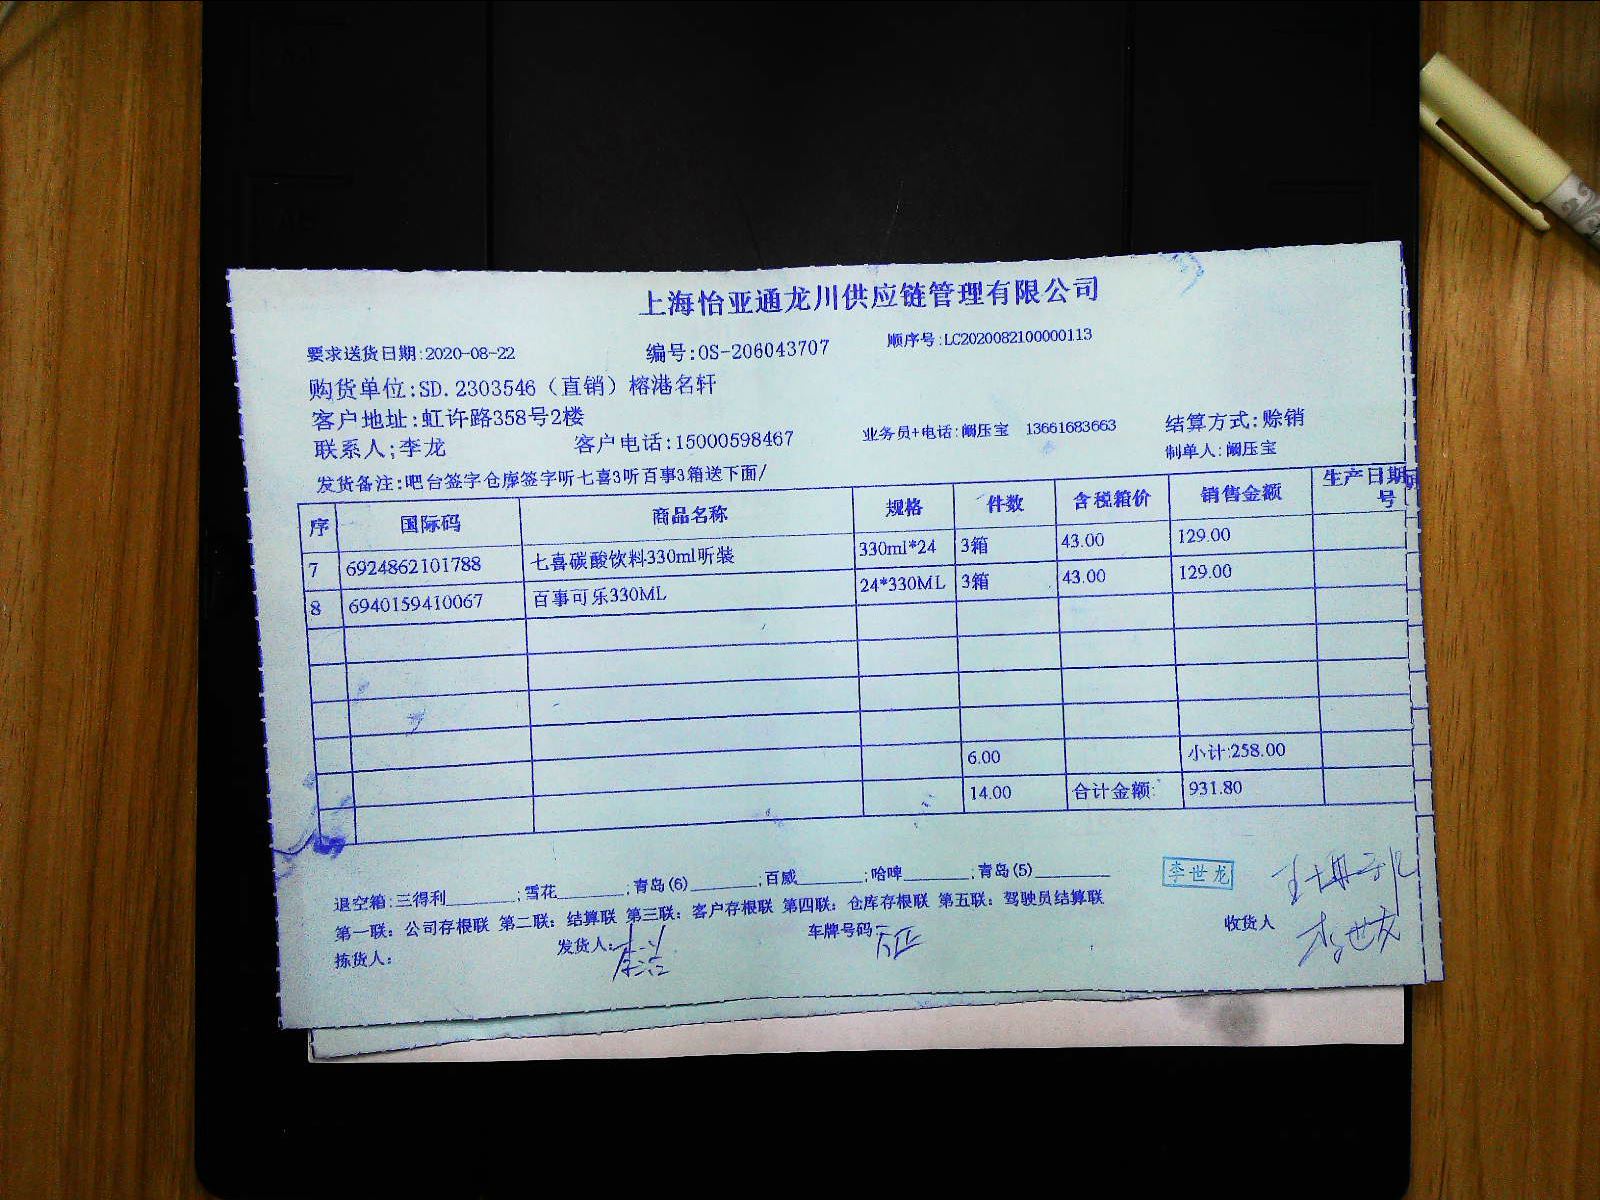 上海怡亚通龙川供应链管理有限公司
要求送货日期:2020-08-22 编号:OS-206043707 顺序号:LC2020082100000113
购货单位:SD.2303546（直销）榕港名轩
客户地址:虹许路358号2楼
联系人;李龙 客户电话:15000598467 业务员+电话:阚压宝 13661683663 结算方式:赊销
制单人:阚压宝
发货备注:吧台签字仓库签字听七喜3听百事3箱送下面/
序 国际码 商品名称 规格 件数 含税箱价 销售金额 生产日期 号
7 6924862101788 七喜碳酸饮料330ml听装 330ml*24 3箱 43.00 129.00
8 6940159410067 百事可乐330ML 24*330ML 3箱 43.00 129.00
6.00 小计:258.00
14.00 合计金额: 931.80
退空箱:三得利______;雪花______;青岛(6)______;百威______;哈啤______;青岛(5)______
李世龙
第一联：公司存根联 第二联：结算联 第三联：客户存根联 第四联：仓库存根联 第五联：驾驶员结算联
拣货人: 发货人: 车牌号码: 收货人 李世龙